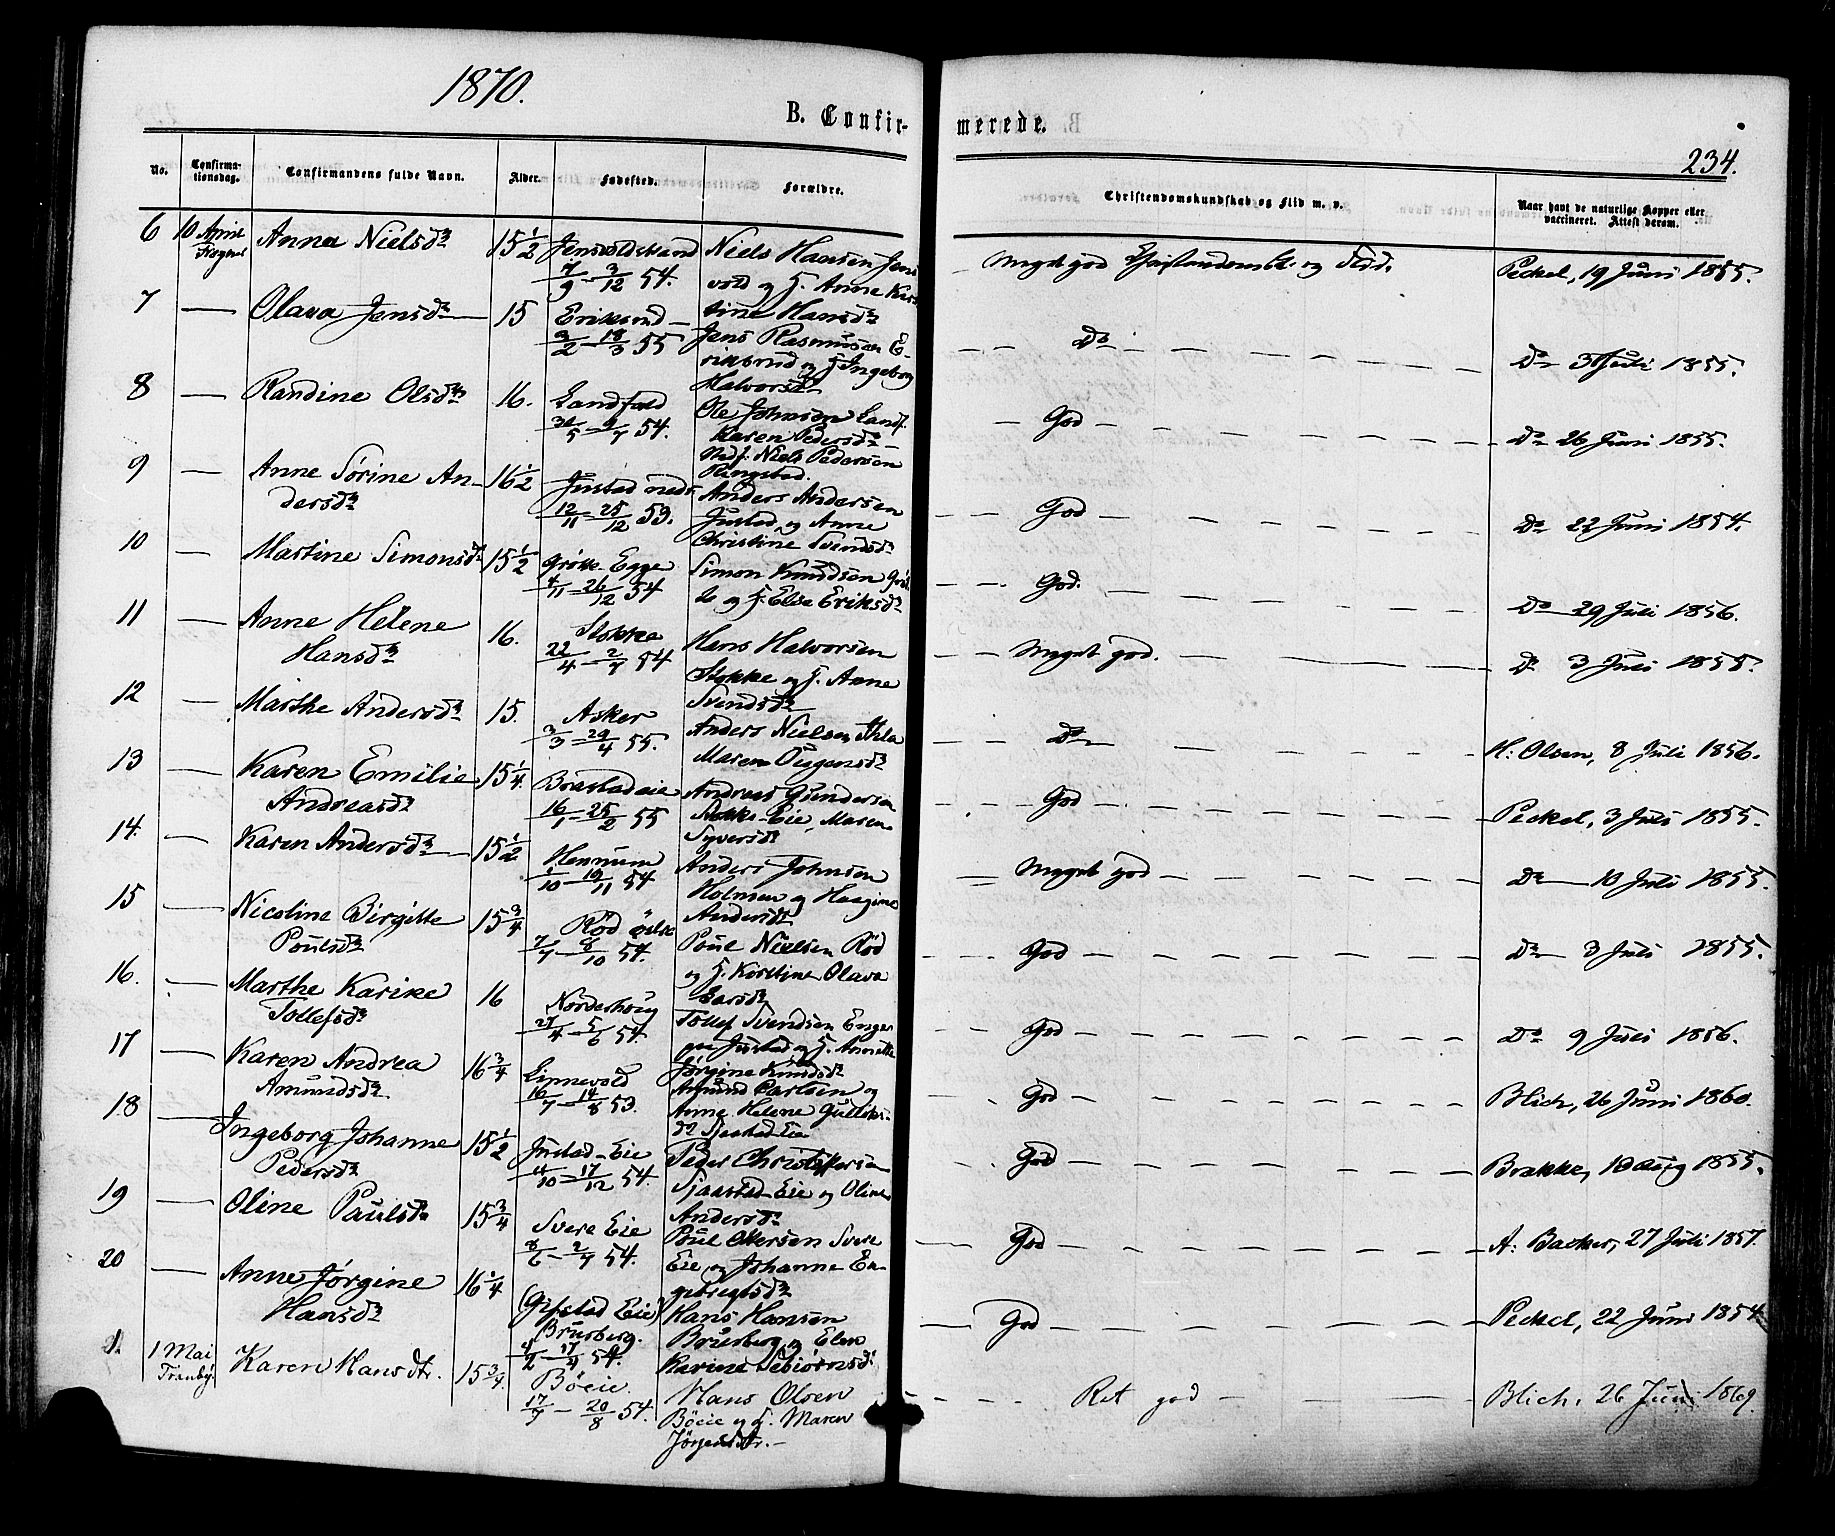 1870.
B. Confir-
merede.
234.
No.
Confirma-
tionsdag.
Confirmandens fulde Navn.
Alder.
Fødested.
Forældre.
Christendomskundskab og Flid m. v.
Naar havt de naturlige Kopper eller
vaccineret. Attest derom.
6 10 April Anna Nielsdr 15 1/2 Jensvoldstrand Niels Hansen Jens
7/9 - 3/12 54. vold og H. Anne Kirs
tine Hansdr
Meget god Christendomsk. og Flid. Peckel, 19 Juni 1855.
7 — Olava Jensdr 15 Eriksrud
3/2 - 18/3 55 Jens Rasmussen E-
riksrud og H. Ingeborg
Halvorsdr
Do Do 3 Juli 1855.
8 — Randine Olsdr 16. Landfald
30/5 - 9/7 54. Ole Johnsen Landf.
Karen Pedersdr
Niels Pedersen
Ringstad.
God Do 26 Juni 1855.
9 — Anne Sørine An- 16 1/2 Justad nedr
dersdr 12/11 - 25/12 53. Anders Andersen
Justad og Anne
Christine Svendsdr
God Do 22 Juni 1854.
10 — Martine Simonsdr 15 1/2 Grøtte Egge
4/11 - 26/12 54 Simon Knudsen Grøt
te og H. Else Eriksdr
God. Do 29 Juli 1856.
11 — Anne Helene 16. Stokke
Hansdr 22/4 - 2/7 54 Hans Halvorsen
Stokke og H. Anne
Svendsdr
Meget god. Do 3 Juli 1855.
12 — Marthe Andersdr 15. Asker
3/3 - 29/4 55. Anders Nielsen
Maren
Do H. Olsen, 8 Juli 1856.
13 — Karen Emilie 15 1/4 Brastadeie
Andreasdr 16/1 - 25/2 55 Andreas Gundersen
Stokke-Eie, Maren
Syversdr
God Peckel, 3 Juli 1855.
14. — Karen Andersdr 15 1/2 Hennum
1/10 - 19/11 54 Anders Johnsen
Holmen og
Andersdr
Meget god Do 10 Juli 1855.
15 — Nicoline Birgitte 15 3/4 Rød
Poulsdr 7/7 - 8/10 54. Poul Nielsen Rød
og H. Kirstine Olava
Larsdr
God Do 3 Juli 1855.
16. — Marthe Karine 16 Norderhoug
Tollefsdr 27/4 - 5/6 54. Tollef Svendsen Enger
Justad og H. Annette
Jørgine Knudsdr
God Do 9 Juli 1856.
17 — Karen Andrea 16 3/4 Linnevold
Amundsdr. 16/7 - 14/8 53. Amund Carlsen og
Anne Helene Gulliks-
dr Sjaastad Eie
God Blich, 26 Juni 1860.
18 — Ingeborg Johanne 15 1/2 Justad-Eie
Pedersdr 4/10 - 17/12 54. Peder Christophersen
Sjaastad Eie og Oline
Andersdr
God Brakke, 10 Aug 1855.
19 — Oline Paulsdr 15 3/4 Svere Eie
8/6 - 2/7 54. Poul Ottersen Svere
Eie og Johanne En-
gebregtsdr
God A. Backer, 27 Juli 1857.
20 — Anne Jørgine 16 1/4 (Gifstad Eie)
Hansdr Bruberg.
4/2 - 17/4 54. Hans Hansen
Bruberg og Elen
Karine
God Peckel, 22 Juni 1854
1. 1 Mai Karen Hansdtr. 15 3/4. Bøeie.
Tranby. 17/7 - 20/8 54. Hans Olsen
Bøeie og H. Maren
Jørgensdtr.
Ret god Blich, 26 Juni 1869.